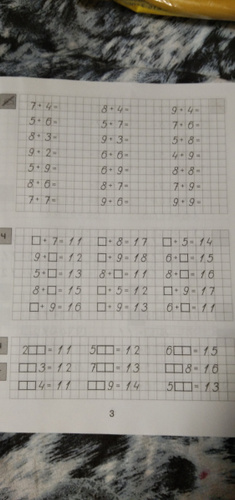 7+4= 8+4= 9+4=
5+6= 5+7= 7+6=
8+3= 9+3= 5+8=
9+2= 6+6= 4+9=
5+9= 6+9= 8+8=
8+6= 8+7= 7+9=
7+7= 9+6= 9+9=
4
□+7=11 □+8=17 □+5=14
9+□=12 □+9=18 6+□=15
5+□=13 8+□=11 8+□=16
8+□=15 □+5=12 □+9=17
□+9=16 □+9=13 6+□=11
2□□=11 5□□=12 6□□=15
□□3=12 7□□=13 □□8=16
□□4=11 □□9=14 5□□=13
3